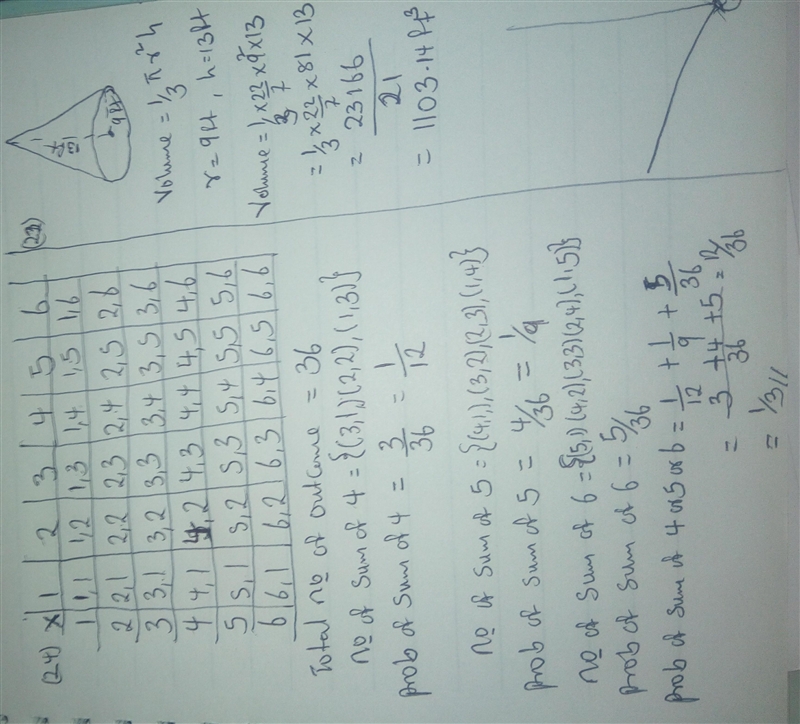 (24)
x 1 2 3 4 5 6
1 1,1 1,2 1,3 1,4 1,5 1,6
2 2,1 2,2 2,3 2,4 2,5 2,6
3 3,1 3,2 3,3 3,4 3,5 3,6
4 4,1 4,2 4,3 4,4 4,5 4,6
5 5,1 5,2 5,3 5,4 5,5 5,6
6 6,1 6,2 6,3 6,4 6,5 6,6
Total no of outcome = 36
no of sum of 4 = {(3,1,)(2,2),(1,3)}
prob of sum of 4 = 3/36 = 1/12
no of sum of 5 = {(4,1),(3,2)(2,3),(1,4)}
prob of sum of 5 = 4/36 = 1/9
no of sum of 6 = {(5,1)(4,2)(3,3)(2,4),(1,5)}
prob of sum of 6 = 5/36
prob of sum of 4 or 5 or 6 = 1/12 + 1/9 + 5/36
= 3+4+5/36 = 12/36
= 1/3 //
(23)
13ft
9ft
Volume = 1/3 πr²h
r = 9ft, h = 13ft
Volume = 1/3 x 22/7 x 9² x 13
= 1/3 x 22/7 x 81 x 13
= 23166/21
= 1103.14 ft³